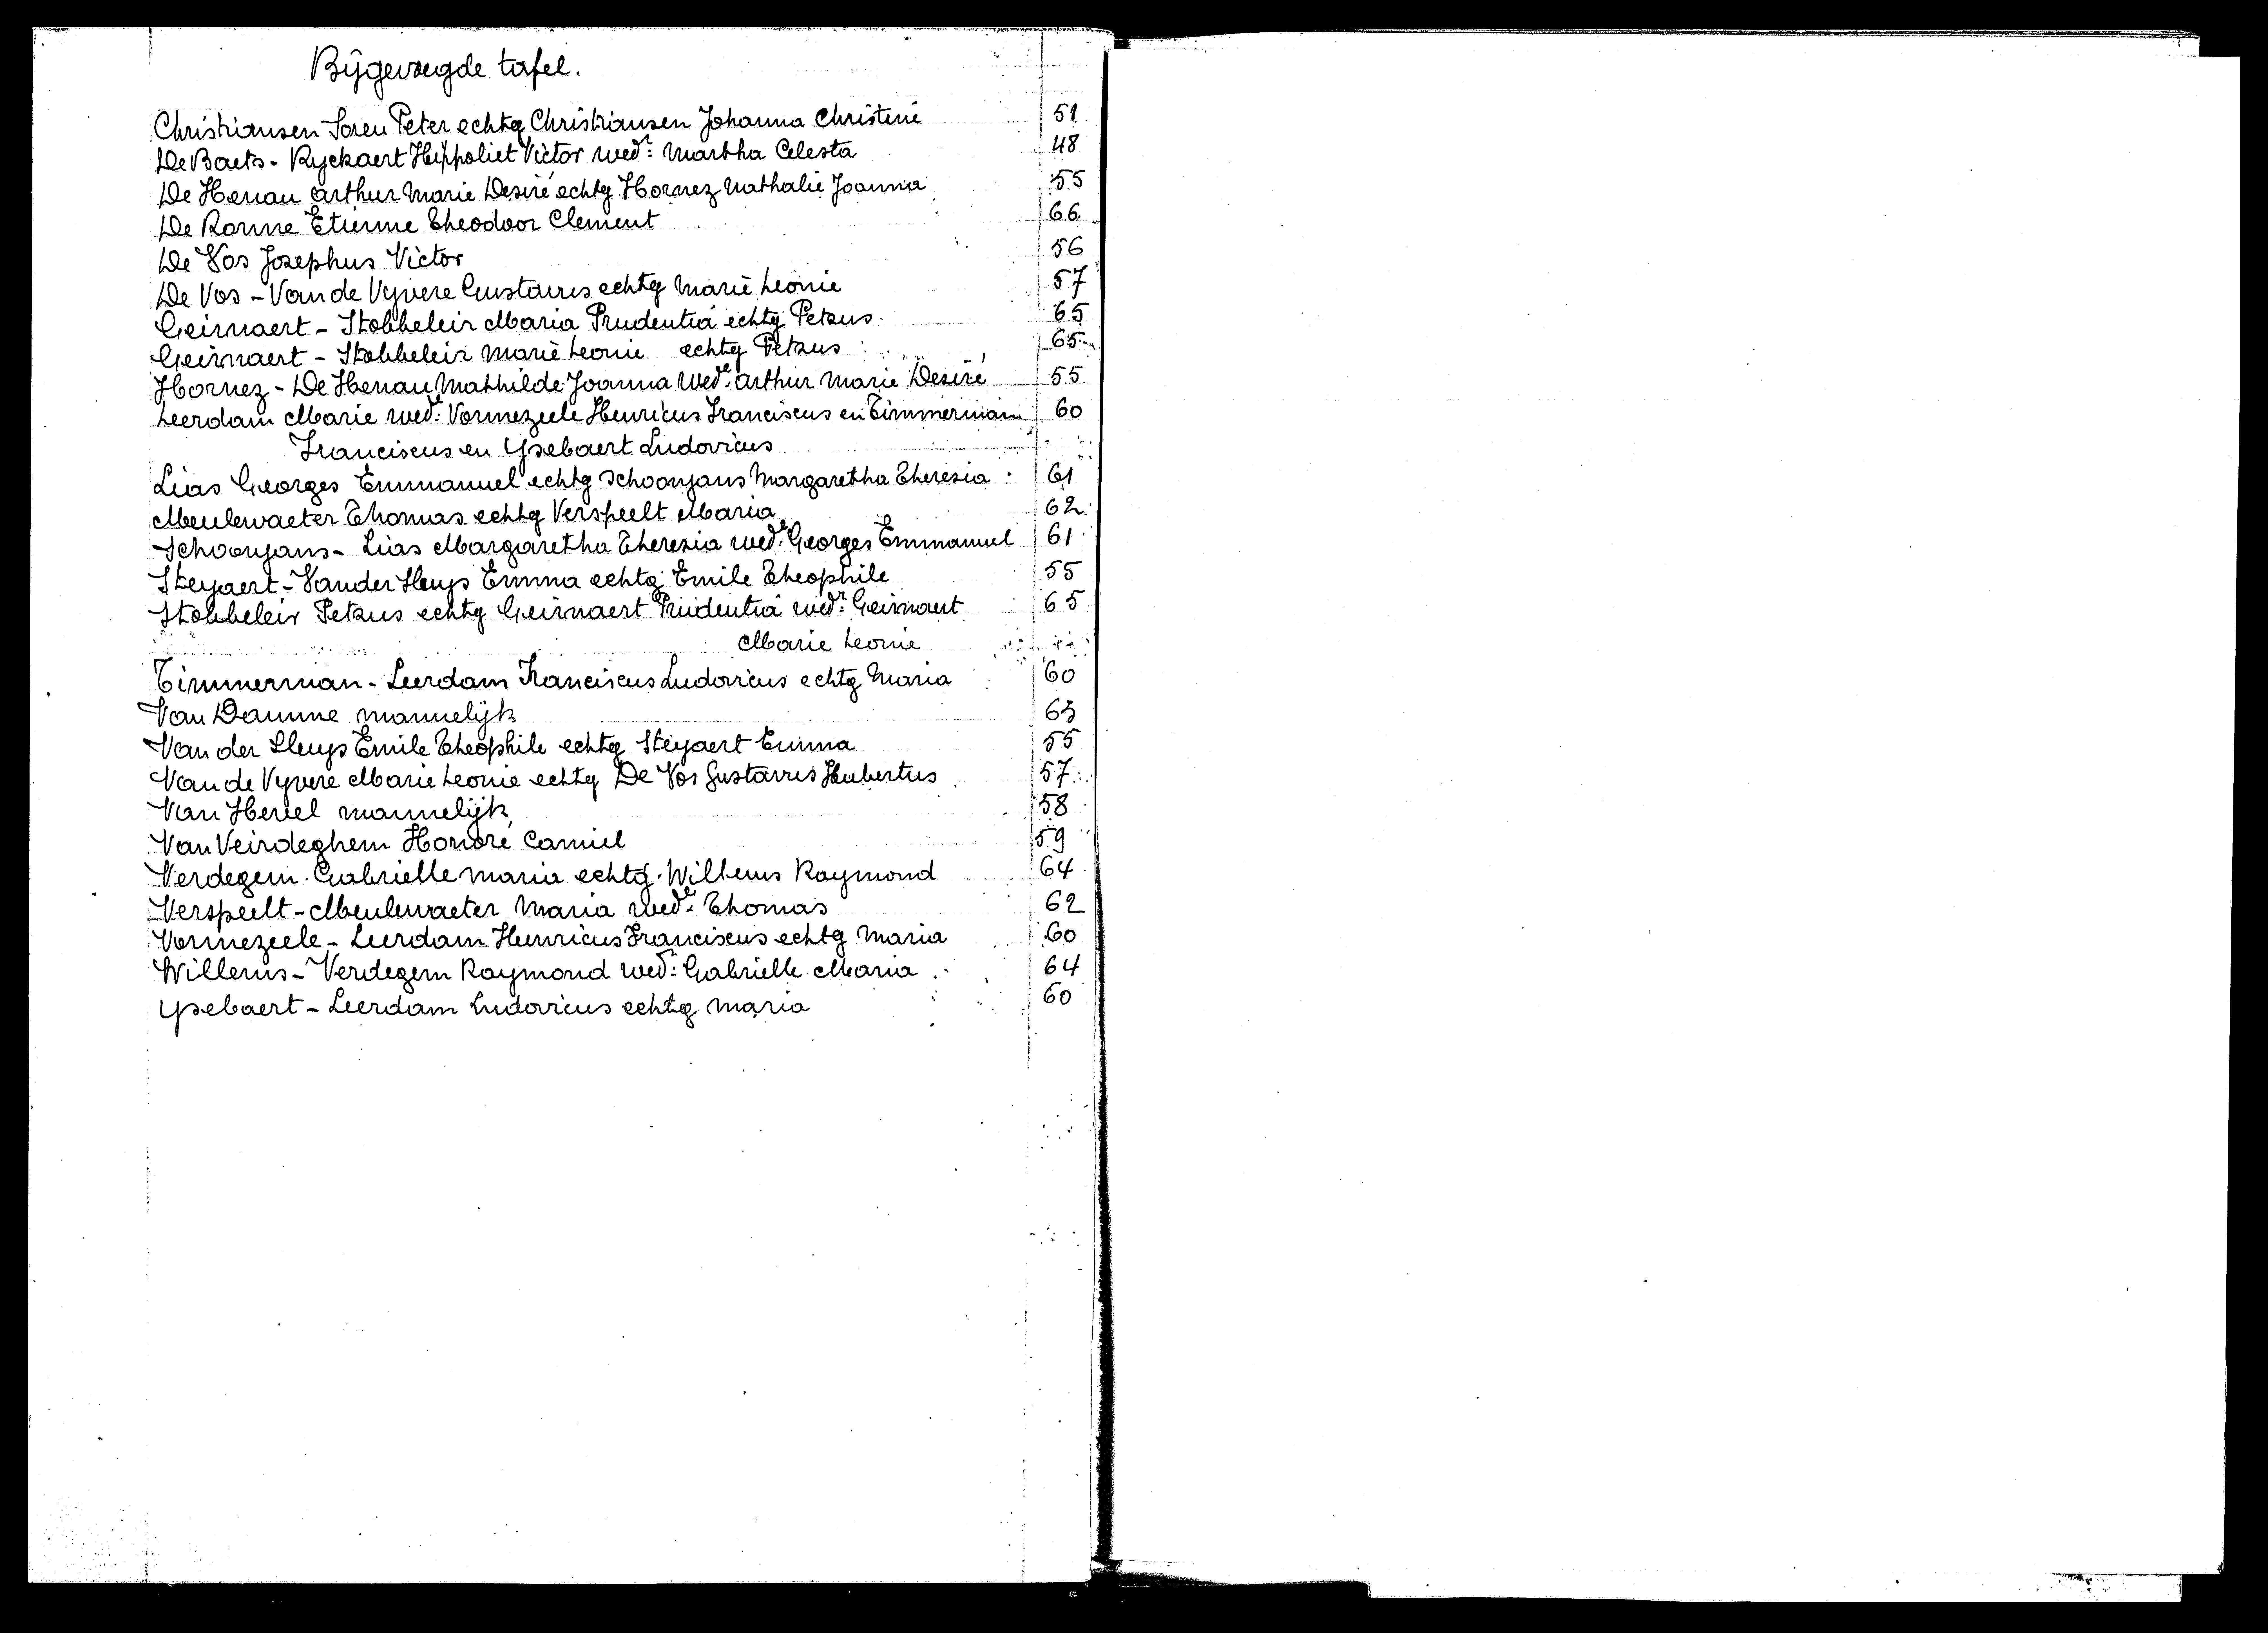 Bijgevoegde tafel.
Christiansen Soren Peter echtg Christiansen Johanna Christene 51
De Baets - Ryckaert Hippoliet Victor wedr: Martha Celesta 48
De Henau Arthur Marie Desiré echtg Hornez Mathalie Joanna 55
De Ronne Etienne Theodoor Clement 66
De Vos Josephus Victor 56
De Vos - Van de Vyvere Gustavus echtg Marie Leonie 57
Geirnaert - Stobbeleir Maria Prudentia echtg Petrus 65
Geirnaert - Stobbeleir Marie Leonie echtg Petrus 65
Hornez - De Henau Mathilde Joanna Wede: Arthur Marie Desiré 55
Leerdam Marie wede: Vormezeele Henricus Franciscus en Timmerman 60
Franciscus en Ysebaert Ludovicus
Lias Georges Emmanuel echtg Schoonjans Margaretha Theresia 61
Meulewaeter Thomas echtg Verspeelt Maria 62
Schoonjans - Lias Margaretha Theresia wede: Georges Emmanuel 61
Steyaert - Vander Sleys Emma echtg Emile Theophile 55
Stobbeleir Petrus echtg Geirnaert Prudentia wedr: Geirnaert 65
Marie Leonie
Timmerman - Leerdam Franciscus Ludovicus echtg Maria 60
Van Damme mannelijk 63
Van der Sluys Emile Theophile echtg Steyaert Emma 55
Van de Vyvere Marie Leonie echtg De Vos Gustavus Hubertus 57
Van Hevel mannelijk 58
Van Veirdeghem Honoré Camiel 59
Verdegem Gabrielle Maria echtg. Willems Raymond 64
Verspeelt - Meulewaeter Maria wede: Thomas 62
Vormezeele - Leerdam Henricus Franciscus echtg Maria 60
Willems - Verdegem Raymond wedr: Gabrielle Maria 64
Ysebaert - Leerdam Ludovicus echtg Maria 60